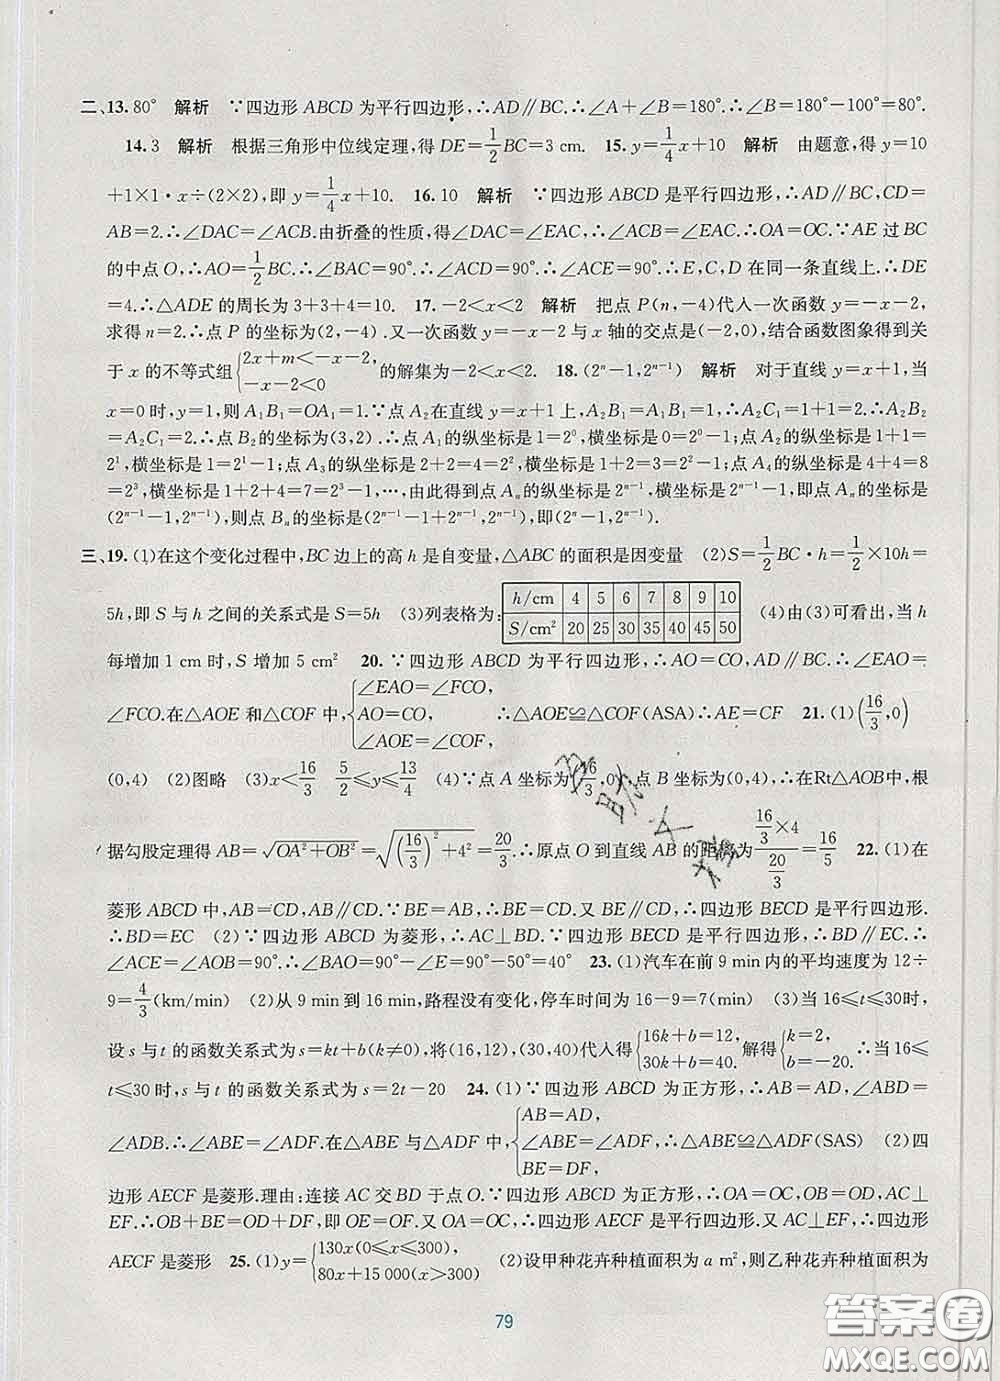 二、13. 80° 解析 ∵四边形ABCD为平行四边形,∴AD∥BC.∴∠A+∠B=180°.∴∠B=180°-100°=80°.
14. 3 解析 根据三角形中位线定理,得DE=1/2BC=3 cm. 15. y=1/4x+10 解析 由题意,得y=10
+1×1·x÷(2×2),即y=1/4x+10. 16. 10 解析 ∵四边形ABCD是平行四边形,∴AD∥BC,CD=
AB=2.∴∠DAC=∠ACB.由折叠的性质,得∠DAC=∠EAC,∴∠EAC=∠ACB.∴OA=OC.∵AE过BC
的中点O,∴AO=1/2BC.∴∠BAC=90°.∴∠ACD=90°.∴∠ACE=90°.∴E,C,D在同一条直线上.∴DE
=4.∴△ADE的周长为3+3+4=10. 17. -2<x<2 解析 把点P(n,-4)代入一次函数y=-x-2,
求得n=2.∴点P的坐标为(2,-4).又一次函数y=-x-2与x轴的交点是(-2,0),结合函数图象得到关
于x的不等式组{2x+m<-x-2, -x-2<0 的解集为-2<x<2. 18. (2ⁿ-1,2ⁿ⁻¹) 解析 对于直线y=x+1,当
x=0时,y=1,则A₁B₁=OA₁=1.∵点A₂在直线y=x+1上,A₂B₁=A₁B₁=1,∴A₂C₁=2.∴A₂B₂
=A₂C₁=2.∴点B₂的坐标为(3,2).∴点A₁的纵坐标是1=2⁰,横坐标是0=2⁰-1;点A₂的纵坐标是1+1=
2¹,横坐标是1=2¹-1;点A₃的纵坐标是2+2=4=2²,横坐标是1+2=3=2²-1;点A₄的纵坐标是4+4=8
=2³,横坐标是1+2+4=7=2³-1,…,由此得到点Aₙ的纵坐标是2ⁿ⁻¹,横坐标是2ⁿ⁻¹-1,即点Aₙ的坐标是
(2ⁿ⁻¹-1,2ⁿ⁻¹),则点Bₙ的坐标是(2ⁿ⁻¹-1+2ⁿ⁻¹,2ⁿ⁻¹),即(2ⁿ-1,2ⁿ⁻¹).
三、19. (1)在这个变化过程中,BC边上的高h是自变量,△ABC的面积是因变量 (2)S=1/2BC·h=1/2×10h=
5h,即S与h之间的关系式是S=5h (3)列表格为: h/cm 4 5 6 7 8 9 10
S/cm² 20 25 30 35 40 45 50 (4)由(3)可看出,当h
每增加1 cm时,S增加5 cm² 20. ∵四边形ABCD为平行四边形,∴AO=CO,AD∥BC.∴∠EAO=
∠FCO.在△AOE和△COF中,{∠EAO=∠FCO, AO=CO, ∠AOE=∠COF, ∴△AOE≌△COF(ASA)∴AE=CF 21. (1)(16/3,0)
(0,4) (2)图略 (3)x<16/3 5/2≤y≤13/4 (4)∵点A坐标为(16/3,0),点B坐标为(0,4),∴在Rt△AOB中,根
据勾股定理得AB=√(OA²+OB²)=√((16/3)²+4²)=20/3.∴原点O到直线AB的距离为(16/3×4)/(20/3)=16/5 22. (1)在
菱形ABCD中,AB=CD,AB∥CD.∵BE=AB,∴BE=CD.又BE∥CD,∴四边形BECD是平行四边形.
∴BD=EC (2)∵四边形ABCD为菱形,∴AC⊥BD.∵四边形BECD是平行四边形,∴BD∥EC.∴
∠ACE=∠AOB=90°.∴∠BAO=90°-∠E=90°-50°=40° 23. (1)汽车在前9 min内的平均速度为12÷
9=4/3(km/min) (2)从9 min到16 min,路程没有变化,停车时间为16-9=7(min) (3)当16≤t≤30时,
设s与t的函数关系式为s=kt+b(k≠0),将(16,12),(30,40)代入得{16k+b=12, 30k+b=40. 解得{k=2, b=-20. ∴当16≤
t≤30时,s与t的函数关系式为s=2t-20 24. (1)∵四边形ABCD为正方形,∴AB=AD,∠ABD=
∠ADB.∴∠ABE=∠ADF.在△ABE与△ADF中,{AB=AD, ∠ABE=∠ADF, BE=DF, ∴△ABE≌△ADF(SAS) (2)四
边形AECF是菱形.理由:连接AC交BD于点O.∵四边形ABCD为正方形,∴OA=OC,OB=OD,AC⊥
EF.∴OB+BE=OD+DF,即OE=OF.又OA=OC,∴四边形AECF是平行四边形.又AC⊥EF,∴四边形
AECF是菱形 25. (1)y={130x(0≤x≤300), 80x+15 000(x>300) (2)设甲种花卉种植面积为a m²,则乙种花卉种植面积为
79
答案圈
MXQE.COM